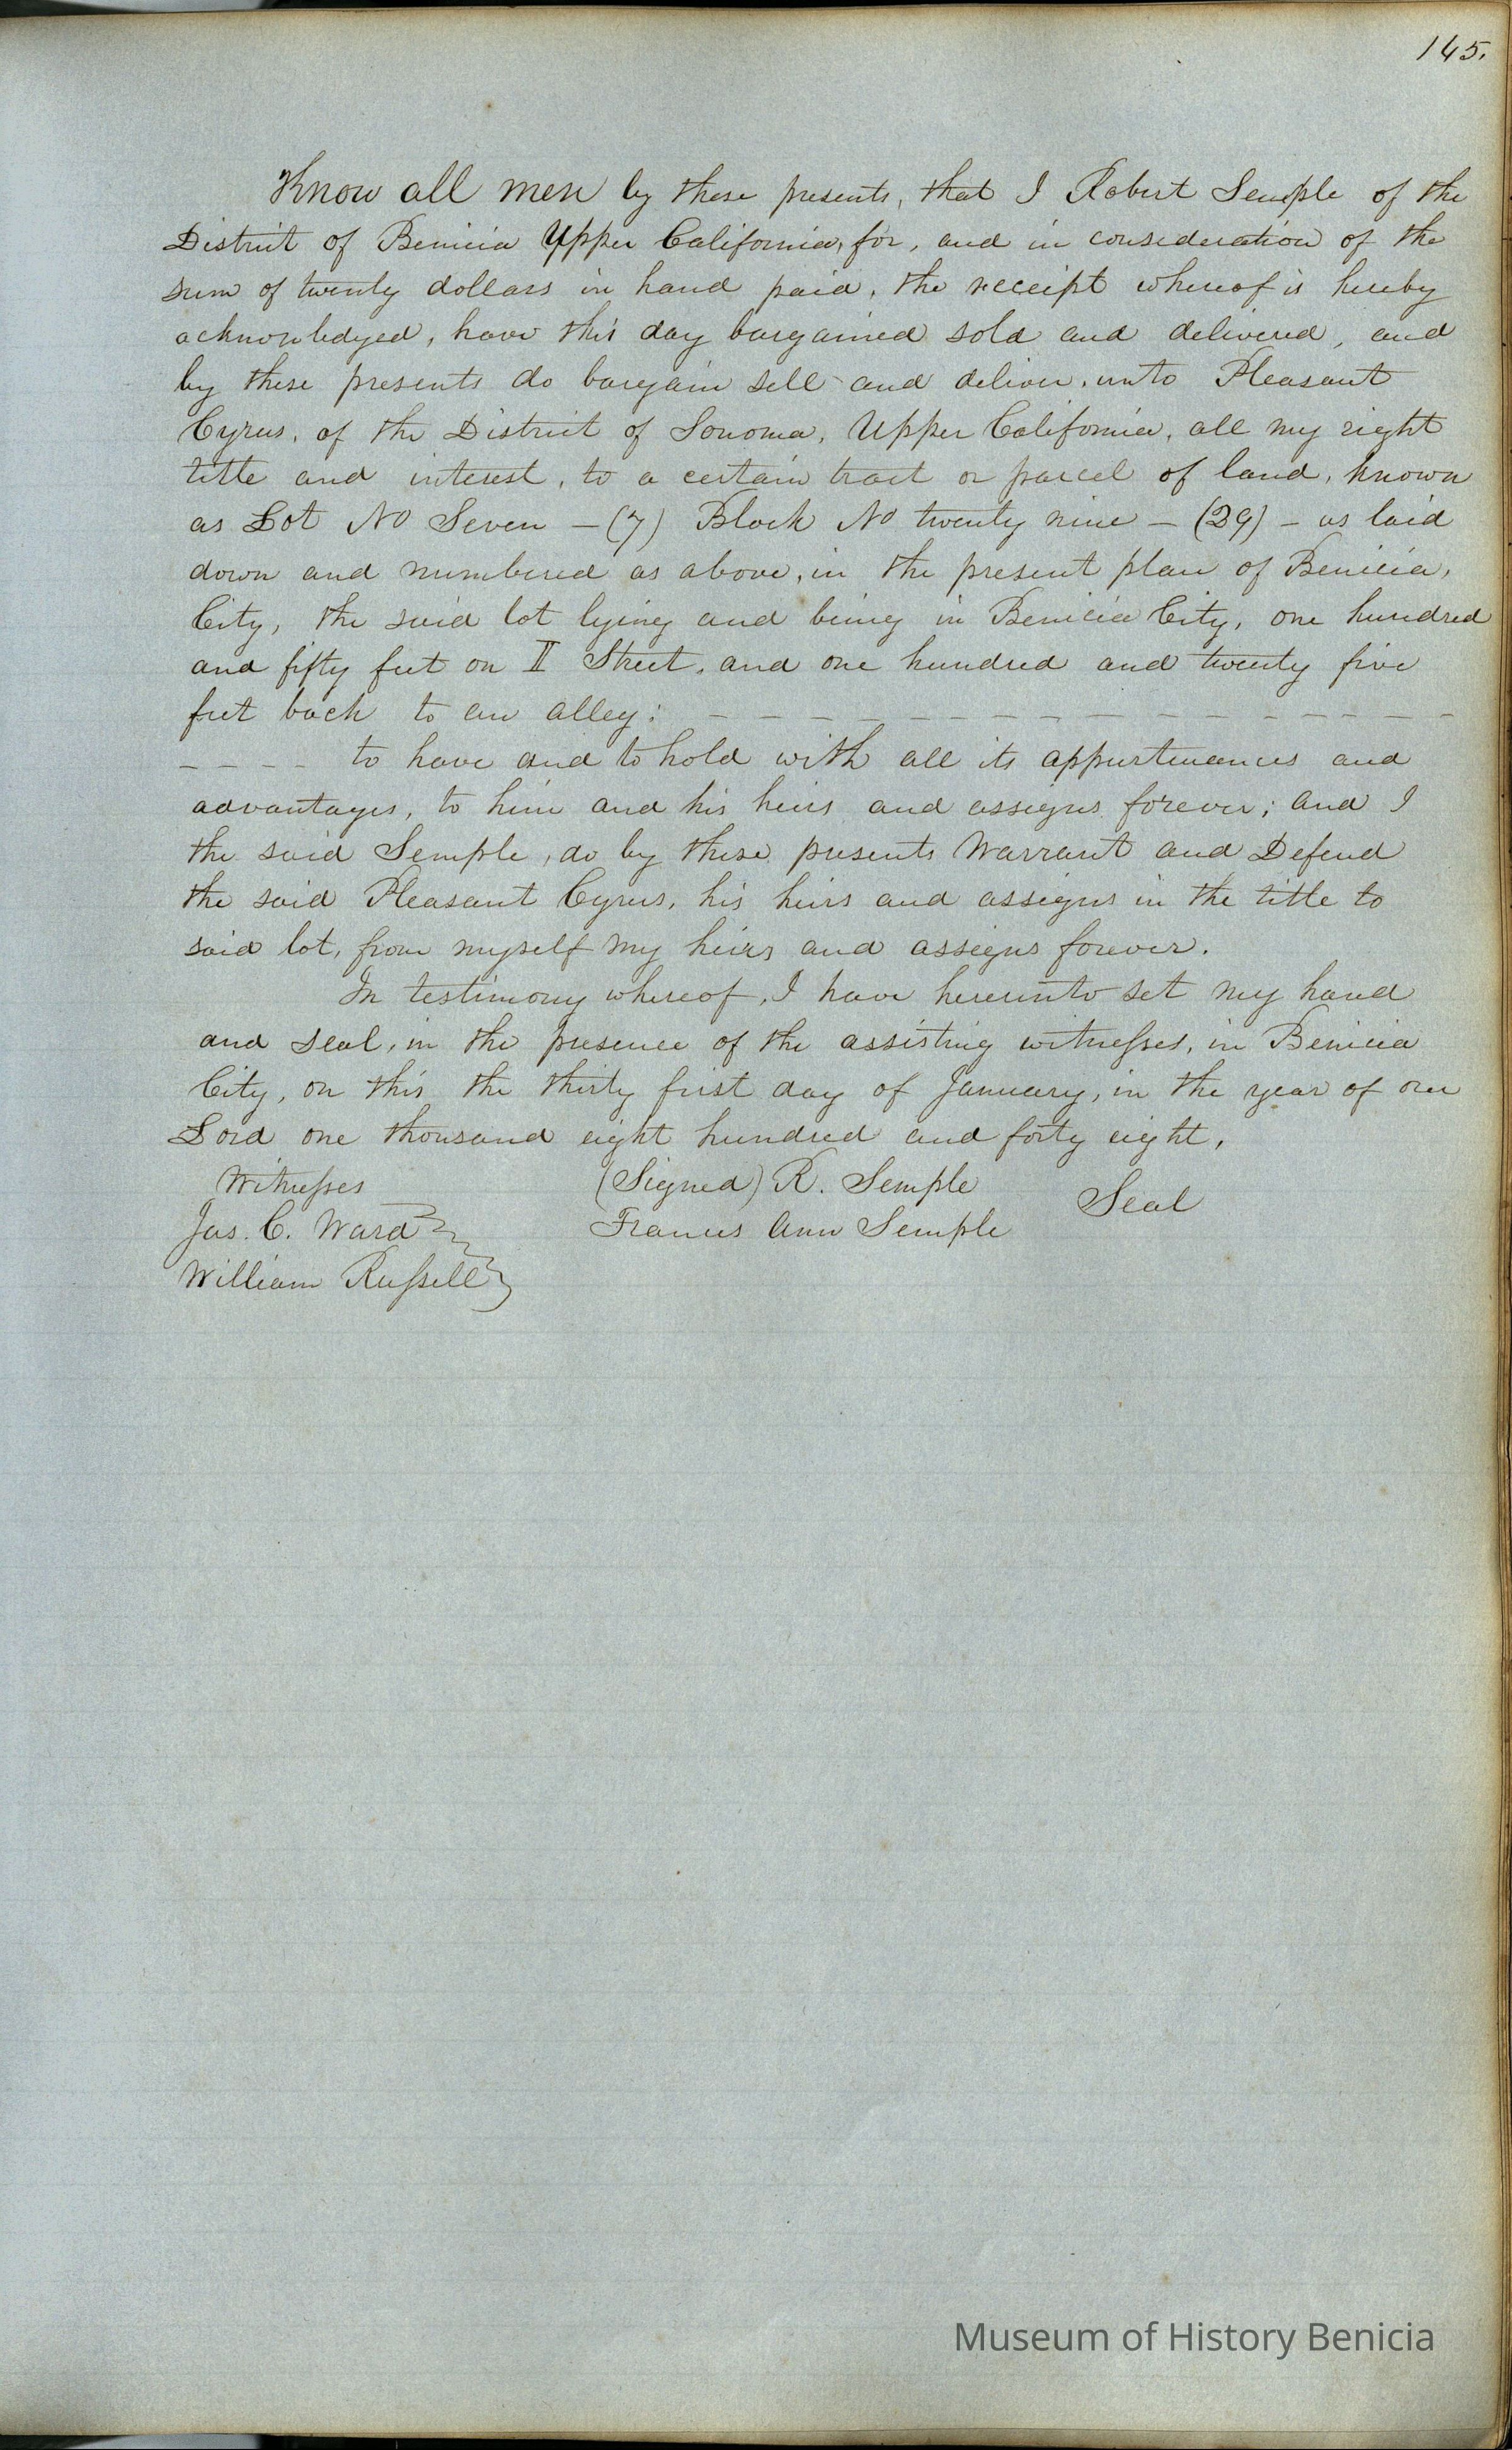 145.
Know all men by these presents, that I Robert Semple of the
District of Benicia Upper California, for, and in consideration of the
sum of twenty dollars in hand paid, the receipt whereof is hereby
acknowledged, have this day bargained sold and delivered, and
by these presents do bargain sell and deliver, unto Pleasant
Cyrus, of the District of Sonoma, Upper California, all my right
title and interest, to a certain tract or parcel of land, known
as Lot No Seven - (7) Block No twenty nine - (29) - as laid
down and numbered as above, in the present plan of Benicia,
City, the said lot lying and being in Benicia City, one hundred
and fifty feet on II Street, and one hundred and twenty five
feet back to an alley: - - - - - - - - - - - - - - - -
- - - - to have and to hold with all its appurtenances and
advantages, to him and his heirs and assigns forever; and I
the said Semple, do by these presents Warrant and Defend
the said Pleasant Cyrus, his heirs and assigns in the title to
said lot, from myself my heirs and assigns forever.
In testimony whereof, I have hereunto set my hand
and seal, in the presence of the assisting witnesses, in Benicia
City, on this the thirty first day of January, in the year of our
Lord one thousand eight hundred and forty eight,
Witnesses (Signed) R. Semple Seal
Jas. C. Ward Frances Ann Semple
William Russell
Museum of History Benicia